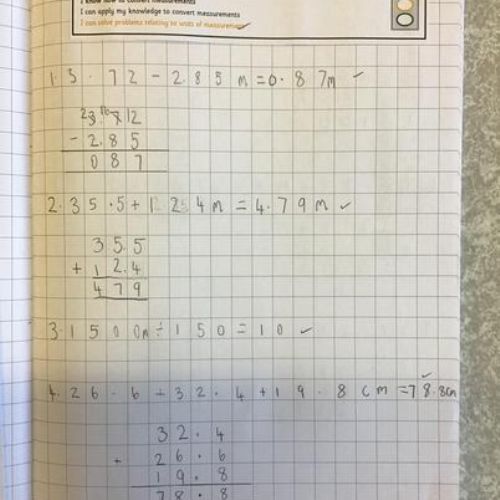 I know how to convert measurements
I can apply my knowledge to convert measurements
I can solve problems relating to units of measurement
1. 3.72 - 2.85 m = 0.87m ✓
- 2.85
087
2. 35.5 + 4m = 4.79m ✓
35.5
+ 12.4
479
3. 1500m ÷ 150 = 10 ✓
4. 26.6 + 32.4 + 19.8 cm = 78.8cm ✓
32.4
+ 26.6
19.8
78.8